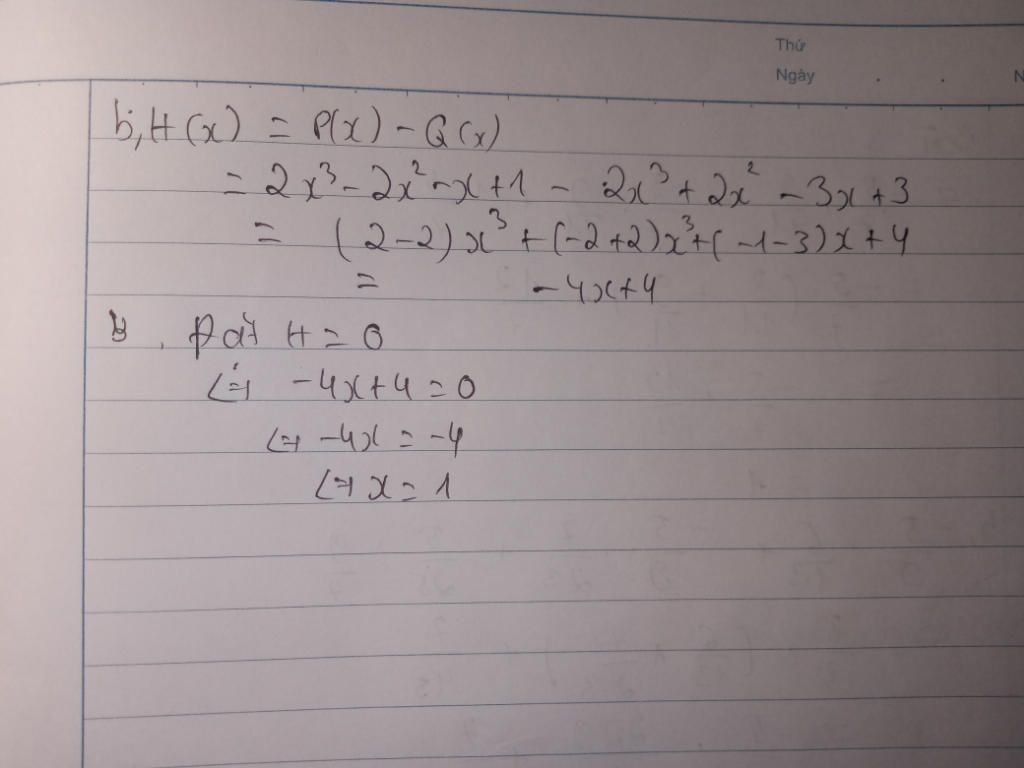 Thứ
Ngày . . N
b, H(x) = P(x) - Q(x)
= 2x³ - 2x² - x + 1 - 2x³ + 2x² - 3x + 3
= (2-2)x³ + (-2+2)x³ + (-1-3)x + 4
= -4x+4
Đặt H = 0
<=> -4x+4 = 0
<=> -4x = -4
<=> x = 1